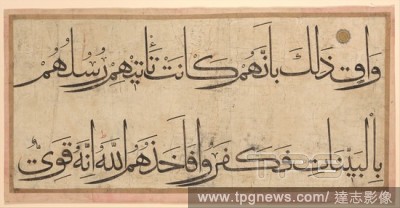 وَاقٍ ذَٰلِكَ بِأَنَّهُمْ كَانَتْ تَأْتِيهِمْ رُسُلُهُمْ
بِالْبَيِّنَاتِ فَكَفَرُوا فَأَخَذَهُمُ اللَّهُ إِنَّهُ قَوِيٌّ
www.tpgnews.com / 達志影像